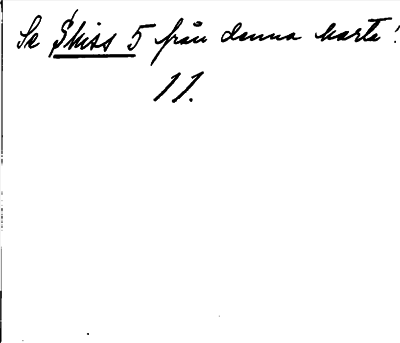 Se Skiss 5 från denna karta!
11.